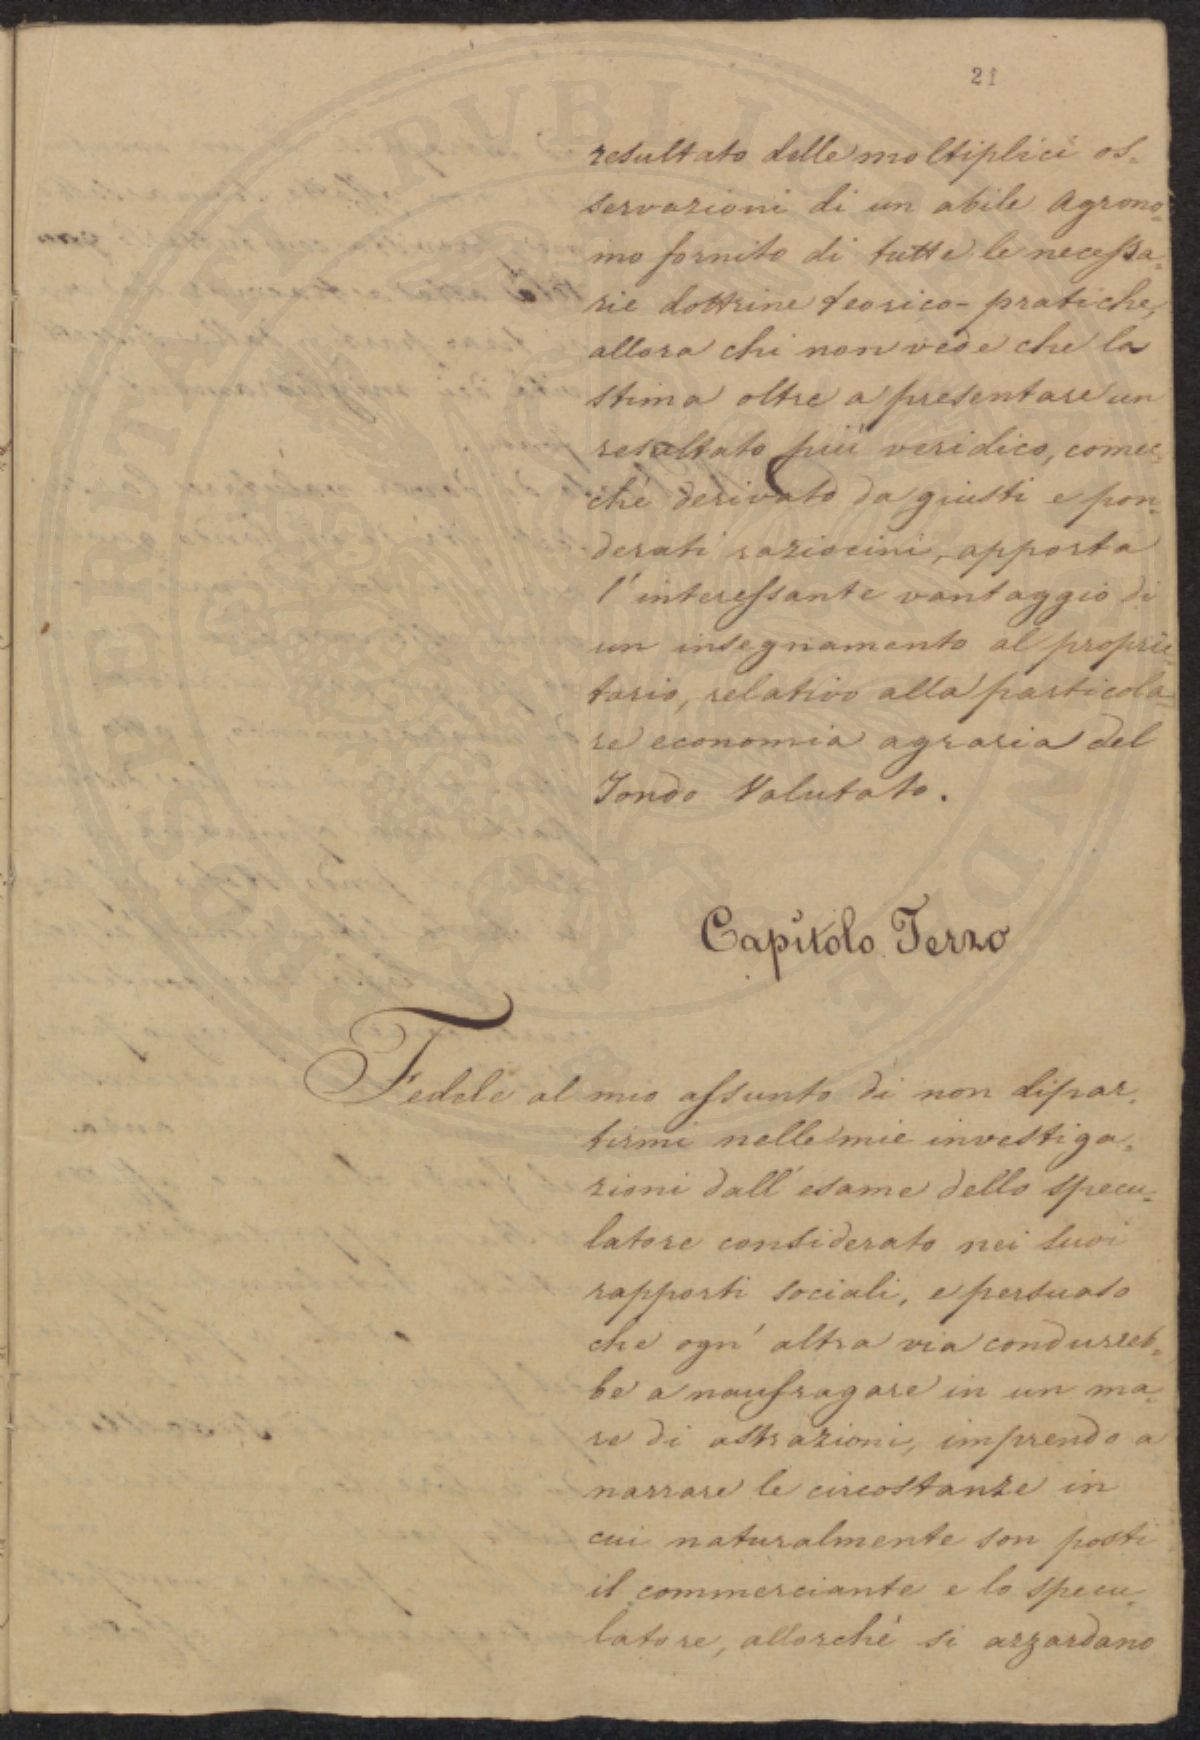 21
resultato delle moltiplici os=
servazioni di un abile Agrono=
mo fornito di tutte le necessa=
rie dottrine teorico-pratiche,
allora chi non vede che la
stima oltre a presentare un
resultato più veridico, comec=
ché derivato da giusti e pon=
derati raziocini, apporta
l'interessante vantaggio di
un insegnamento al proprie=
tario, relativo alla particola=
re economia agraria del
Fondo Valutato.
Capitolo Terzo
Fedele al mio assunto di non dipar=
tirmi nelle mie investiga=
zioni dall'esame dello specu=
latore considerato nei suoi
rapporti sociali, e persuaso
che ogn'altra via condurreb=
be a naufragare in un ma=
re di astrazioni, imprendo a
narrare le circostanze in
cui naturalmente son posti
il commerciante e lo specu=
latore, allorché si azzardano